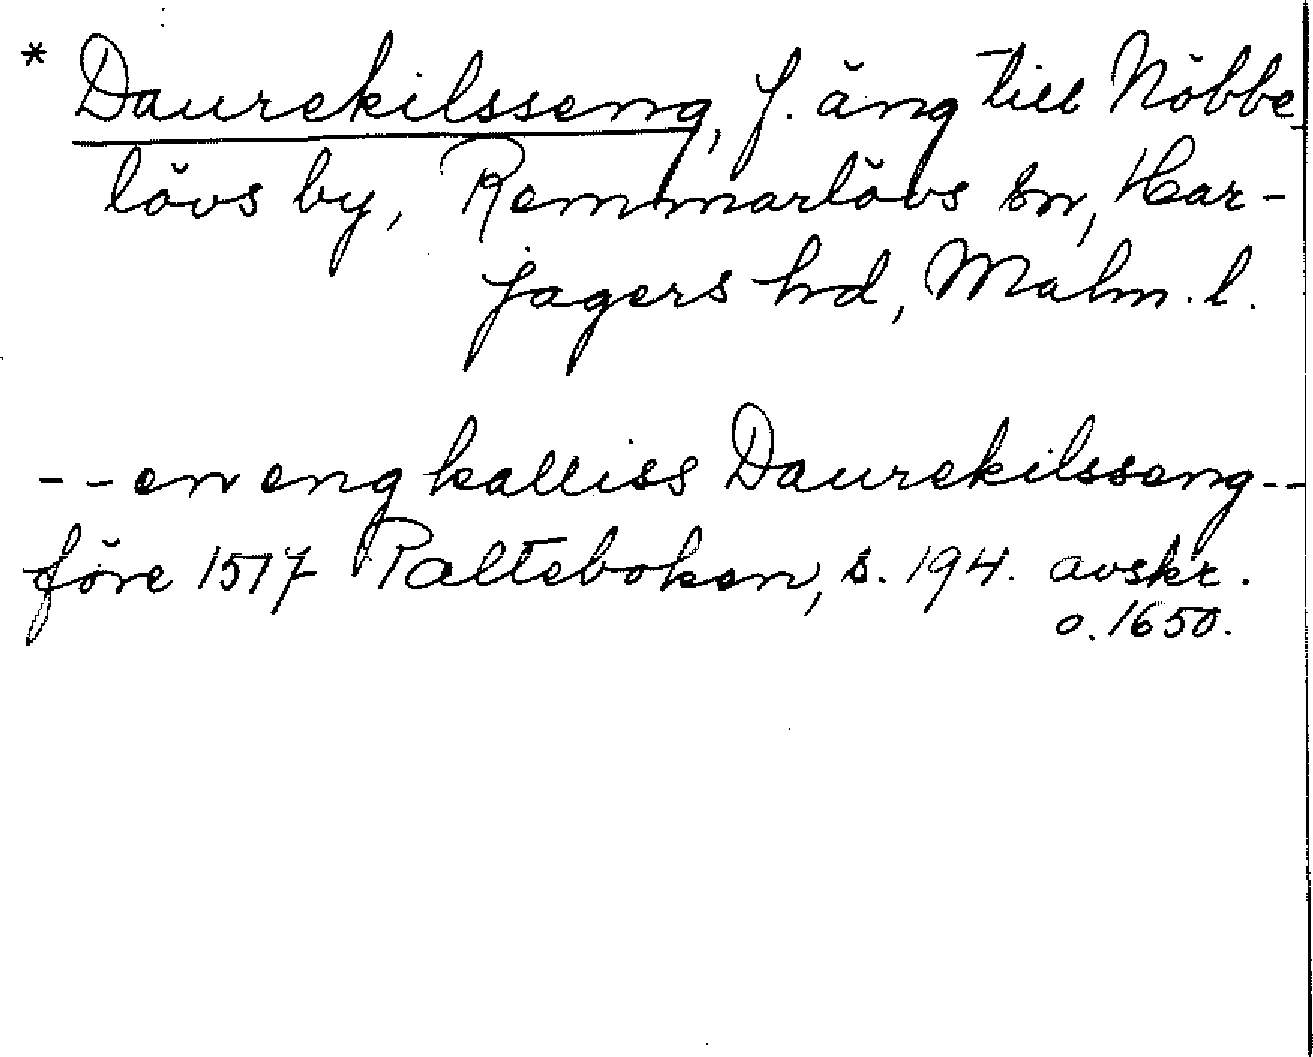 * Daurekilsseng, f. äng till Nöbbe-
lövs by, Remmarlövs sn, Har-
jagers hd, Malm. l.
-- en eng kalliss Daurekilsseng --
före 1517 Palteboken, s. 194. avskr.
o. 1650.